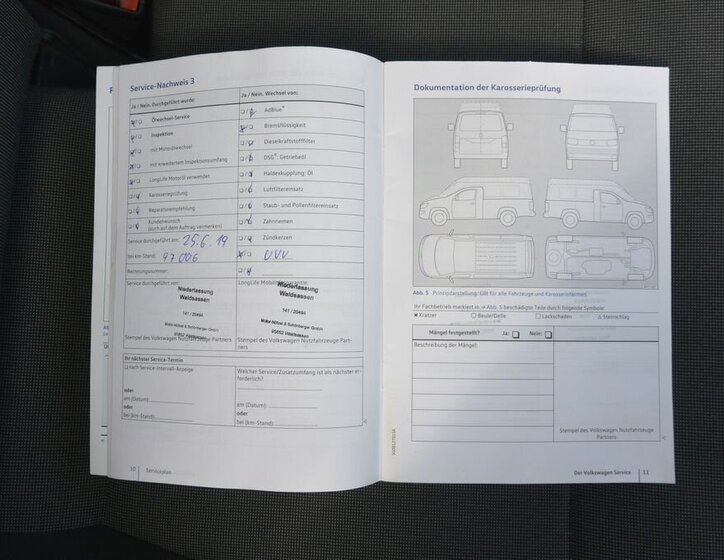 Service-Nachweis 3
Ja / Nein. Durchgeführt wurde:
Ölwechsel-Service
Inspektion
mit Motorölwechsel
mit erweitertem Inspektionsumfang
LongLife Motoröl verwendet
Karosserieprüfung
Reparaturempfehlung
Kundenwunsch
(auch auf dem Auftrag vermerken)
Service durchgeführt am: 25.6.19
bei km-Stand: 97006
Rechnungsnummer:
Service durchgeführt von:
Niederlassung
Waldsassen
741 / 20494
Motor-Nützel & Schönberger GmbH
95652 Waldsassen
Stempel des Volkswagen Nutzfahrzeuge Partners
Ja / Nein. Wechsel von:
AdBlue®
Bremsflüssigkeit
Dieselkraftstofffilter
DSG®: Getriebeöl
Haldexkupplung: Öl
Luftfiltereinsatz
Staub- und Pollenfiltereinsatz
Zahnriemen
Zündkerzen
UVV
LongLife
Niederlassung
Waldsassen
741 / 20494
Motor-Nützel & Schönberger GmbH
95652 Waldsassen
Stempel des Volkswagen Nutzfahrzeuge Part-
ners
Ihr nächster Service-Termin
nach Service-Intervall-Anzeige
oder
am (Datum):
oder
bei (km-Stand):
Welcher Service/Zusatzumfang ist als nächster er-
forderlich?
am (Datum):
oder
bei (km-Stand):
10 Serviceplan
Dokumentation der Karosserieprüfung
Abb. 5 Prinzipdarstellung: Gilt für alle Fahrzeuge und Karosserieformen.
Ihr Fachbetrieb markiert in → Abb. 5 beschädigte Teile durch folgende Symbole:
Kratzer Beule/Delle Lackschaden Steinschlag
Mängel festgestellt? Ja: Nein:
Beschreibung der Mängel:
Stempel des Volkswagen Nutzfahrzeuge
Partners
Der Volkswagen Service 11